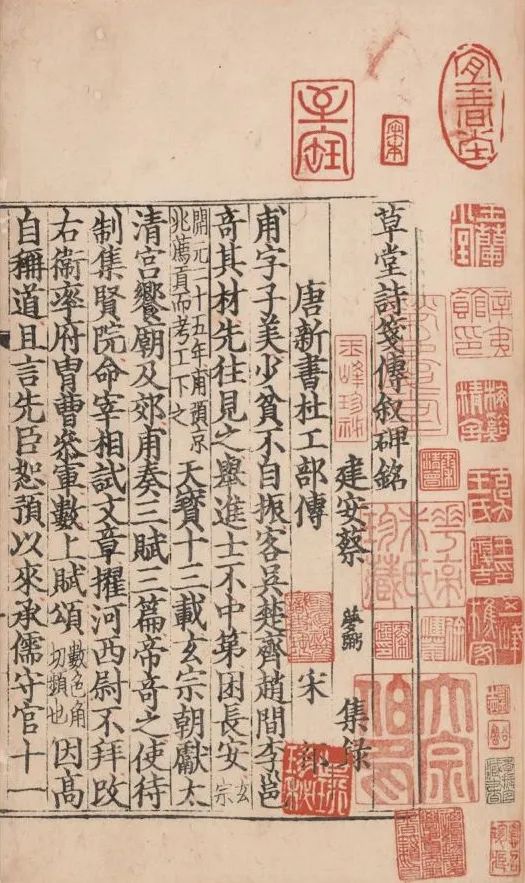 草堂詩箋傳叙碑銘
建安蔡夢弼集錄
唐新書杜工部傳 宋祁
甫字子美少貧不自振客吳楚齊趙間李邕
奇其材先往見之舉進士不中第困長安玄宗
開元二十五年甫預京兆薦貢而考工下之天寶十三載玄宗朝獻太
清宮饗廟及郊甫奏三賦三篇帝奇之使待
制集賢院命宰相試文章擢河西尉不拜改
右衛率府胄曹叅軍數上賦頌數色角切頻也因高
自稱道且言先臣恕預以來承儒守官十一
宋本
玉蘭堂
辛夷館印
梅谿精舍
五峰樵客
華亭朱氏珍藏
大宗伯印